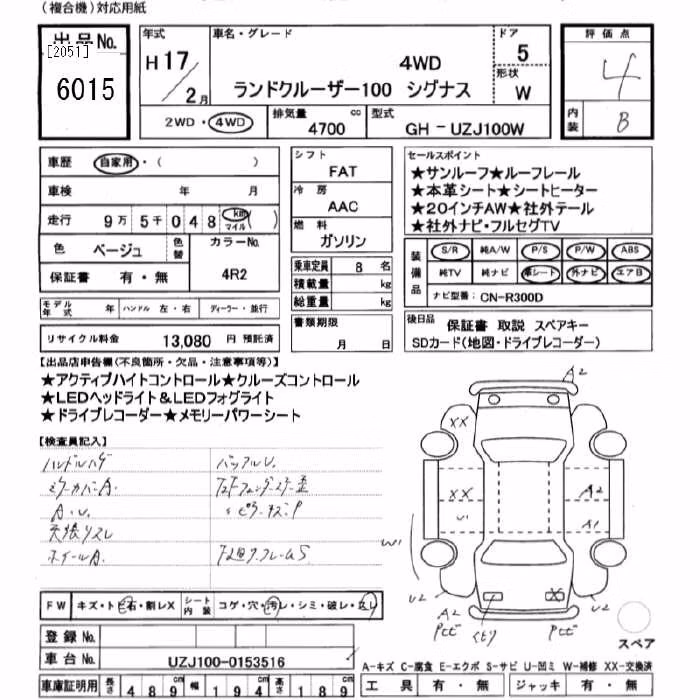 (複合機)対応用紙
出品No.
[2051]
6015
年式
H17/2月
車名・グレード
4WD
ランドクルーザー100 シグナス
ドア
5
形状
W
評価点
4
内装
B
2WD・4WD
排気量
4700 cc
型式
GH-UZJ100W
車歴
自家用・( )
車検 年 月
走行 9万5千048 km マイル ( )
色 ベージュ 色替
カラーNo.
4R2
保証書 有・無
モデル年式 年 ハンドル 左・右 ディーラー・並行
リサイクル料金 13,080 円 預託済
シフト
FAT
冷房
AAC
燃料
ガソリン
乗車定員 8 名
積載量 kg
総重量 kg
書類期限
月 日
セールスポイント
★サンルーフ★ルーフレール
★本革シート★シートヒーター
★20インチAW★社外テール
★社外ナビ・フルセグTV
装備品
S/R 純A/W P/S P/W ABS
純TV 純ナビ 革シート 外ナビ エアB
ナビ型番: CN-R300D
後日品 保証書 取説 スペアキー
SDカード(地図・ドライブレコーダー)
【出品店申告欄(不良箇所・欠品・注意事項等)】
★アクティブハイトコントロール★クルーズコントロール
★LEDヘッドライト&LEDフォグライト
★ドライブレコーダー★メモリーパワーシート
【検査員記入】
ハンドルハゲ
A.U.
天張リスレ
ホイールA.
A2
XX
XX
U1
A2
A1
W1
U2
A2
U2
FW キズ・トビ石・割レX
シート内装 コゲ・穴・汚レ・シミ・破レ・スレ
登録No.
車台No. UZJ100-0153516
スペア
A-キズ C-腐食 E-エクボ S-サビ U-凹ミ W-補修 XX-交換済
車庫証明用 長さ 489cm 幅 194cm 高さ 189cm
工具 有・無 ジャッキ 有・無